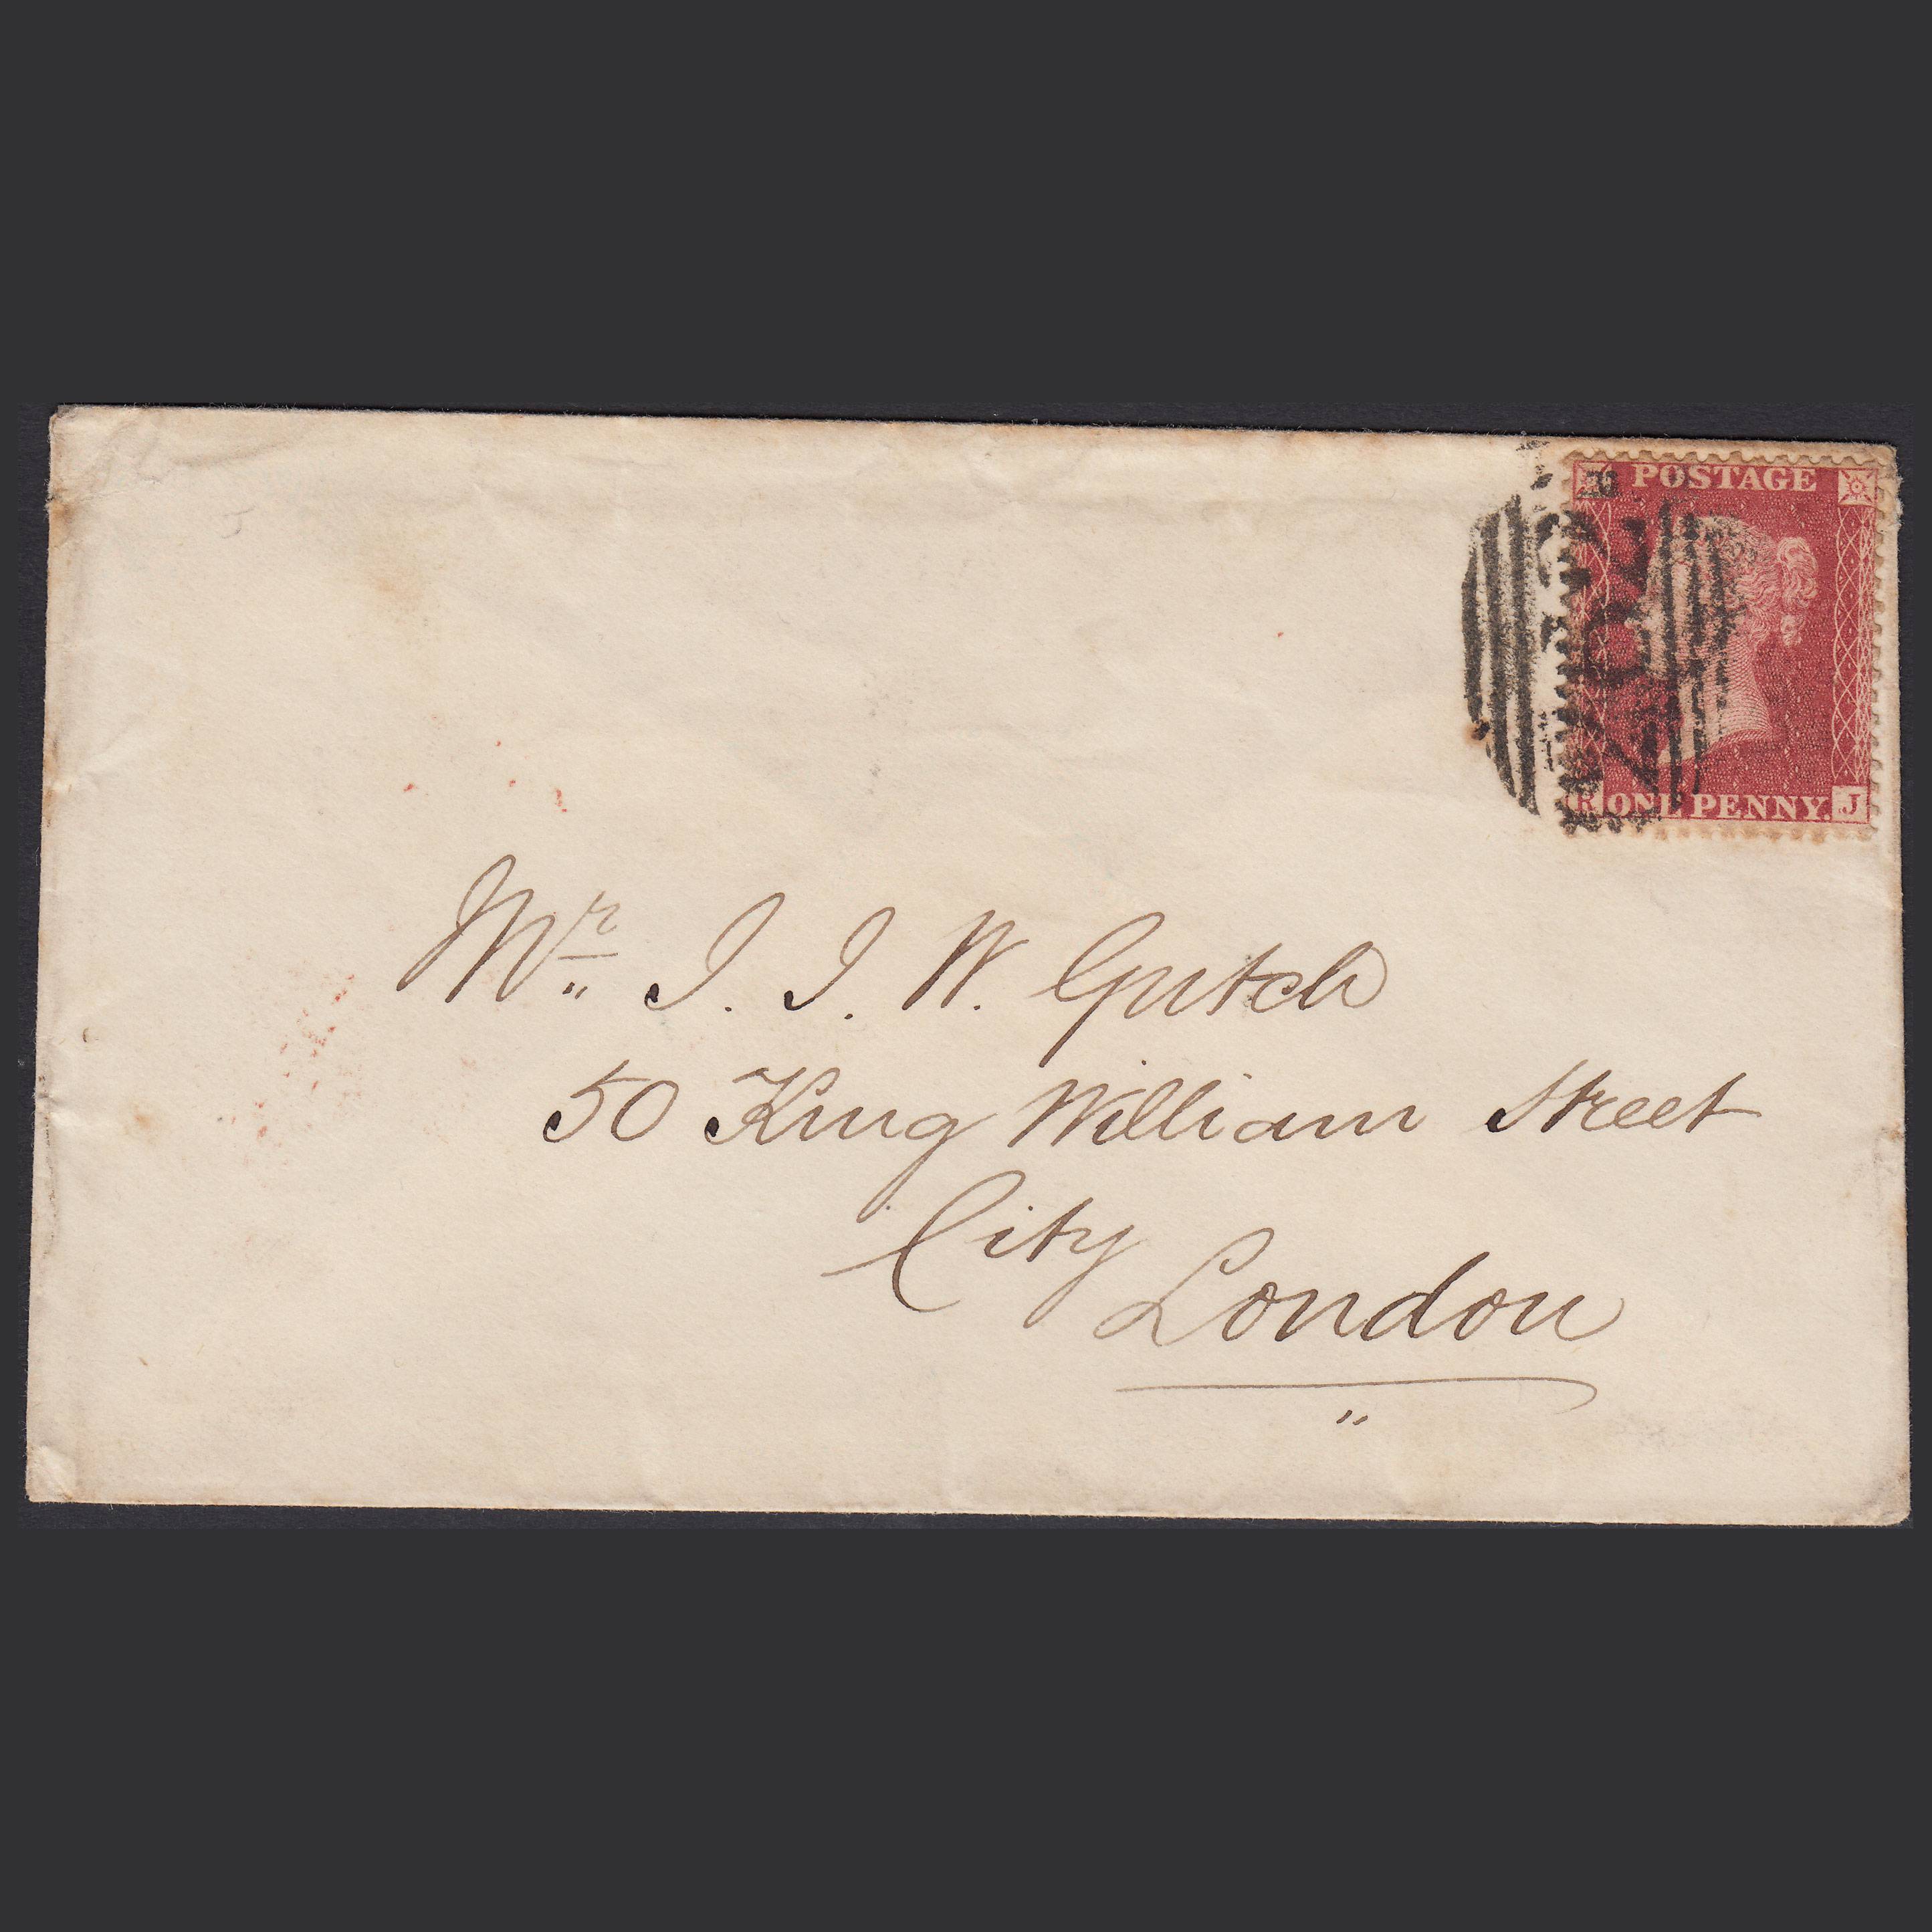 POSTAGE
R ONE PENNY. J
Mr. J. J. W. Gutch
50 King William Street
City
London